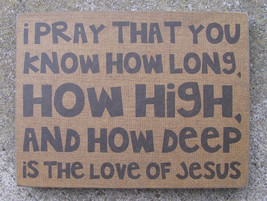 i PRAY THAT YOU
KNOW HOW LONG,
HOW HiGH,
AND HOW DEEP
iS THE LOVE OF JESUS